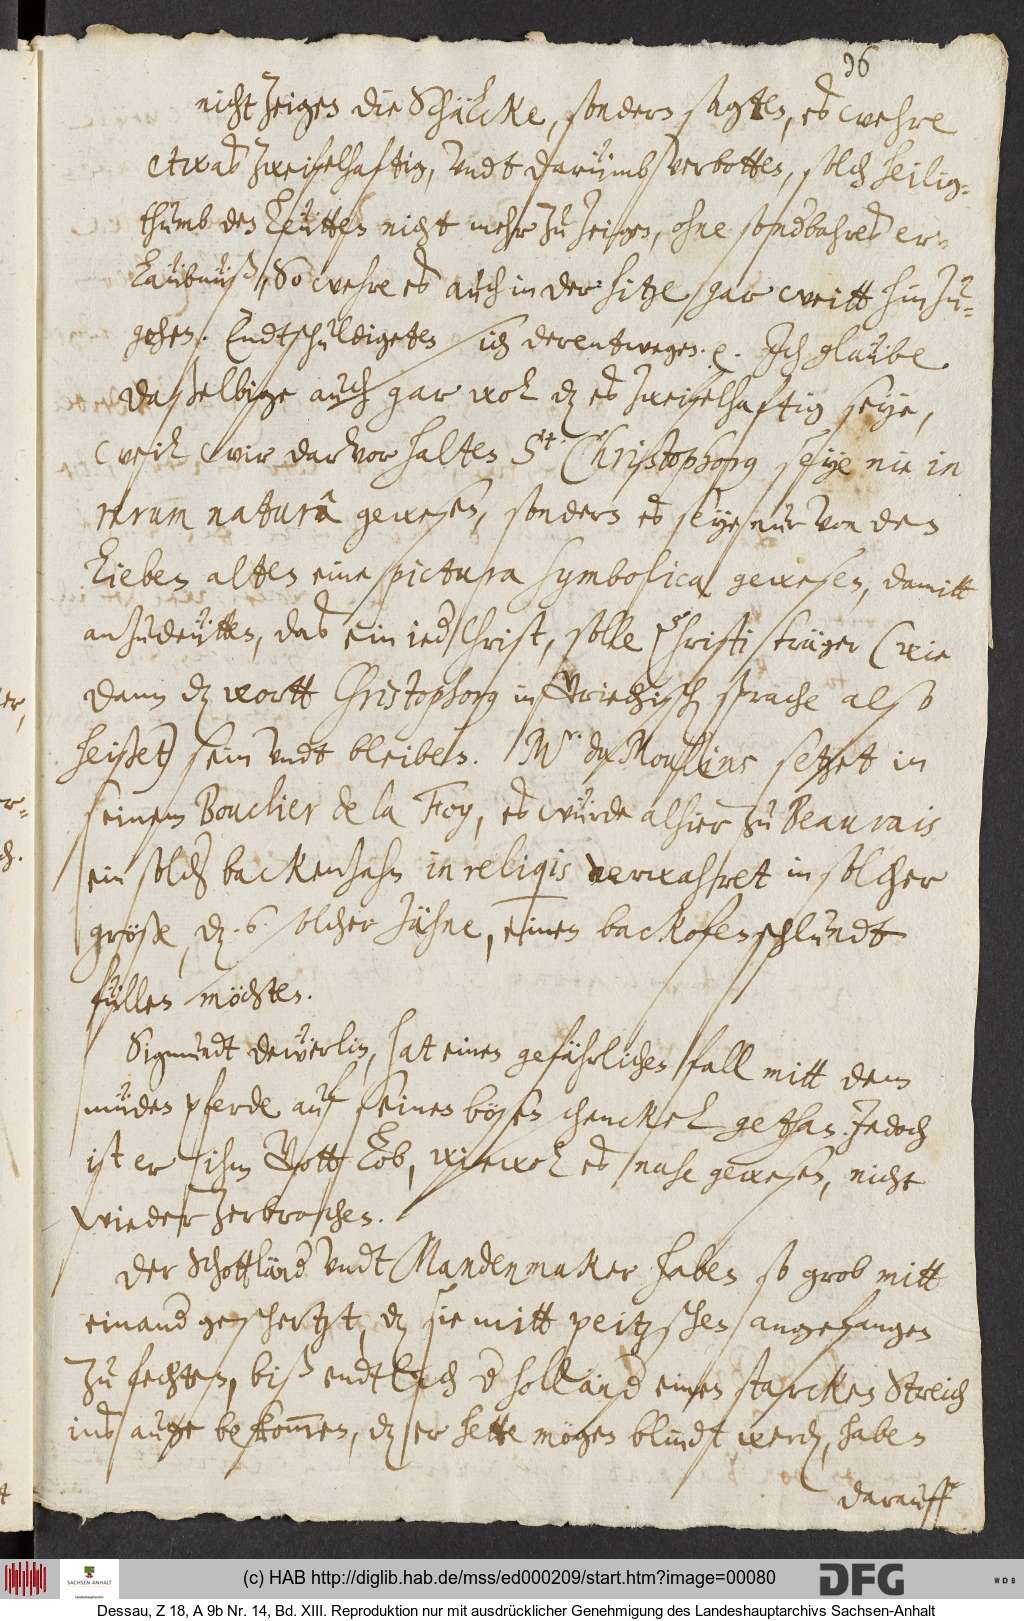 96
nicht zeigen die Schälcke, sondern sagten, es wehre
etwas zweifelhaftig, undt darümb verbotten, solch heilig-
thumb den Leütten nicht mehr zu zeigen, ohne sonderbahres er-
laübnüß, So wehre es auch in der hitze gar weitt hinzu-
gehen. Endtschuldigeten sich derentwegen. Ich glaübe
daßelbige auch gar wol dz es zweifelhaftig seye,
weil wir darvor halten St. Christophorus seye nie in
rerum naturâ gewesen, sondern es seye nur von den
lieben alten eine pictura symbolica gewesen, damitt
anzudeütten, das ein ieder Christ, solle Christi träger (wie
dann dz wortt Christophorus in Griechisch sprache also
heißet) sein undt bleiben. Mr. du Moulins setzet in
seinem Bouclier de la Foy, es würde alhier zu Beauvais
ein solch backenzahn in reliqiis verwahret in solcher
größe, dz. 6. solcher Zähne, einen backofen schlundt
füllen möchten.
Sigmundt Deüerlin, hat einen gefährlichen fall mitt dem
müden pferde auf seinen bösen schenckel gethan. Jedoch
ist er ihm Gott Lob, wiewol es nahe gewesen, nicht
wieder zerbrochen.
Der Schottländer undt Mandenmaker haben so grob mitt
einander geschertzt, dz sie mitt peitzschen angefangen
zu fechten, biß endtlich der holländer einen starcken Streich
ins auge bekommen, dz er hette mögen blindt werden, haben
darauff
(c) HAB http://diglib.hab.de/mss/ed000209/start.htm?image=00080
SACHSEN-ANHALT
DFG
WDB
Dessau, Z 18, A 9b Nr. 14, Bd. XIII. Reproduktion nur mit ausdrücklicher Genehmigung des Landeshauptarchivs Sachsen-Anhalt